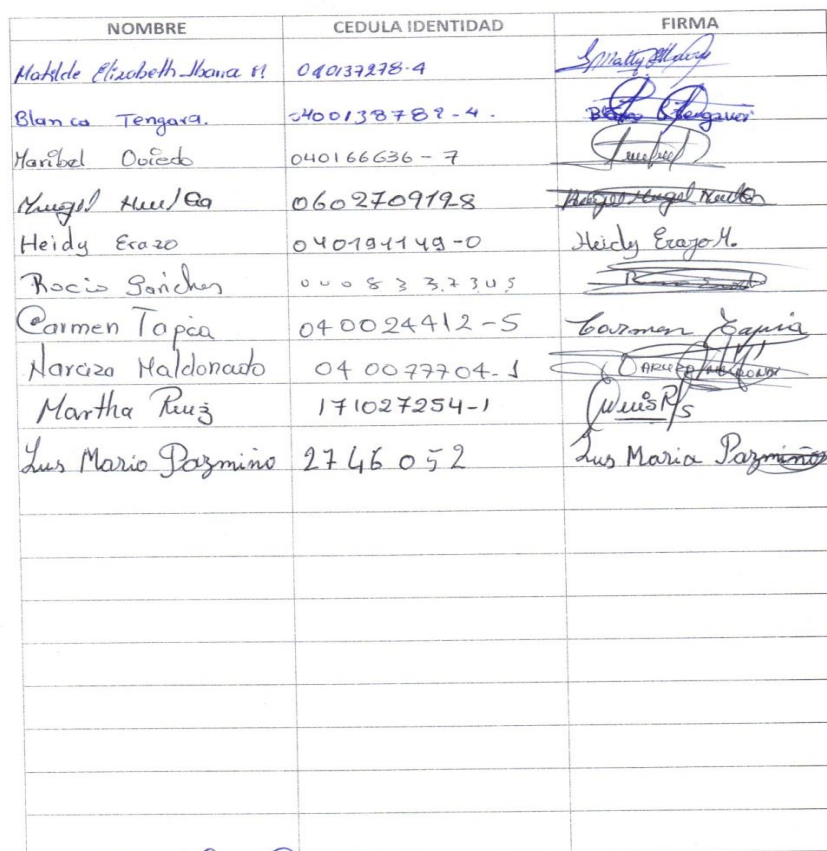 NOMBRE CEDULA IDENTIDAD FIRMA
Matilde Elizabeth Ibarra M 040137278-4
Blanca Tengara. 040013878?-4.
Maribel Oviedo 040166636-7
060270919-8
Heidy Erazo 040191149-0 Heidy Erazo M.
Rocio Sanches 04008337305
Carmen Tapia 040024412-5 Carmen Tapia
Narciza Maldonado 040077704-1
Martha Ruiz 171027254-1
Lus Mario Pazmiño 2746052 Lus Maria Pazmiño